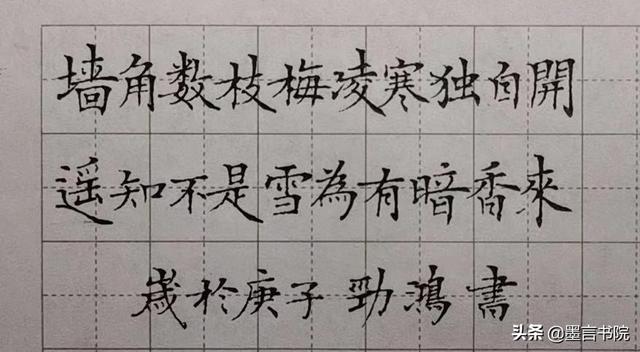 墙角数枝梅凌寒独自開
遥知不是雪為有暗香來
歲於庚子 勁鴻書
头条 @墨言书院